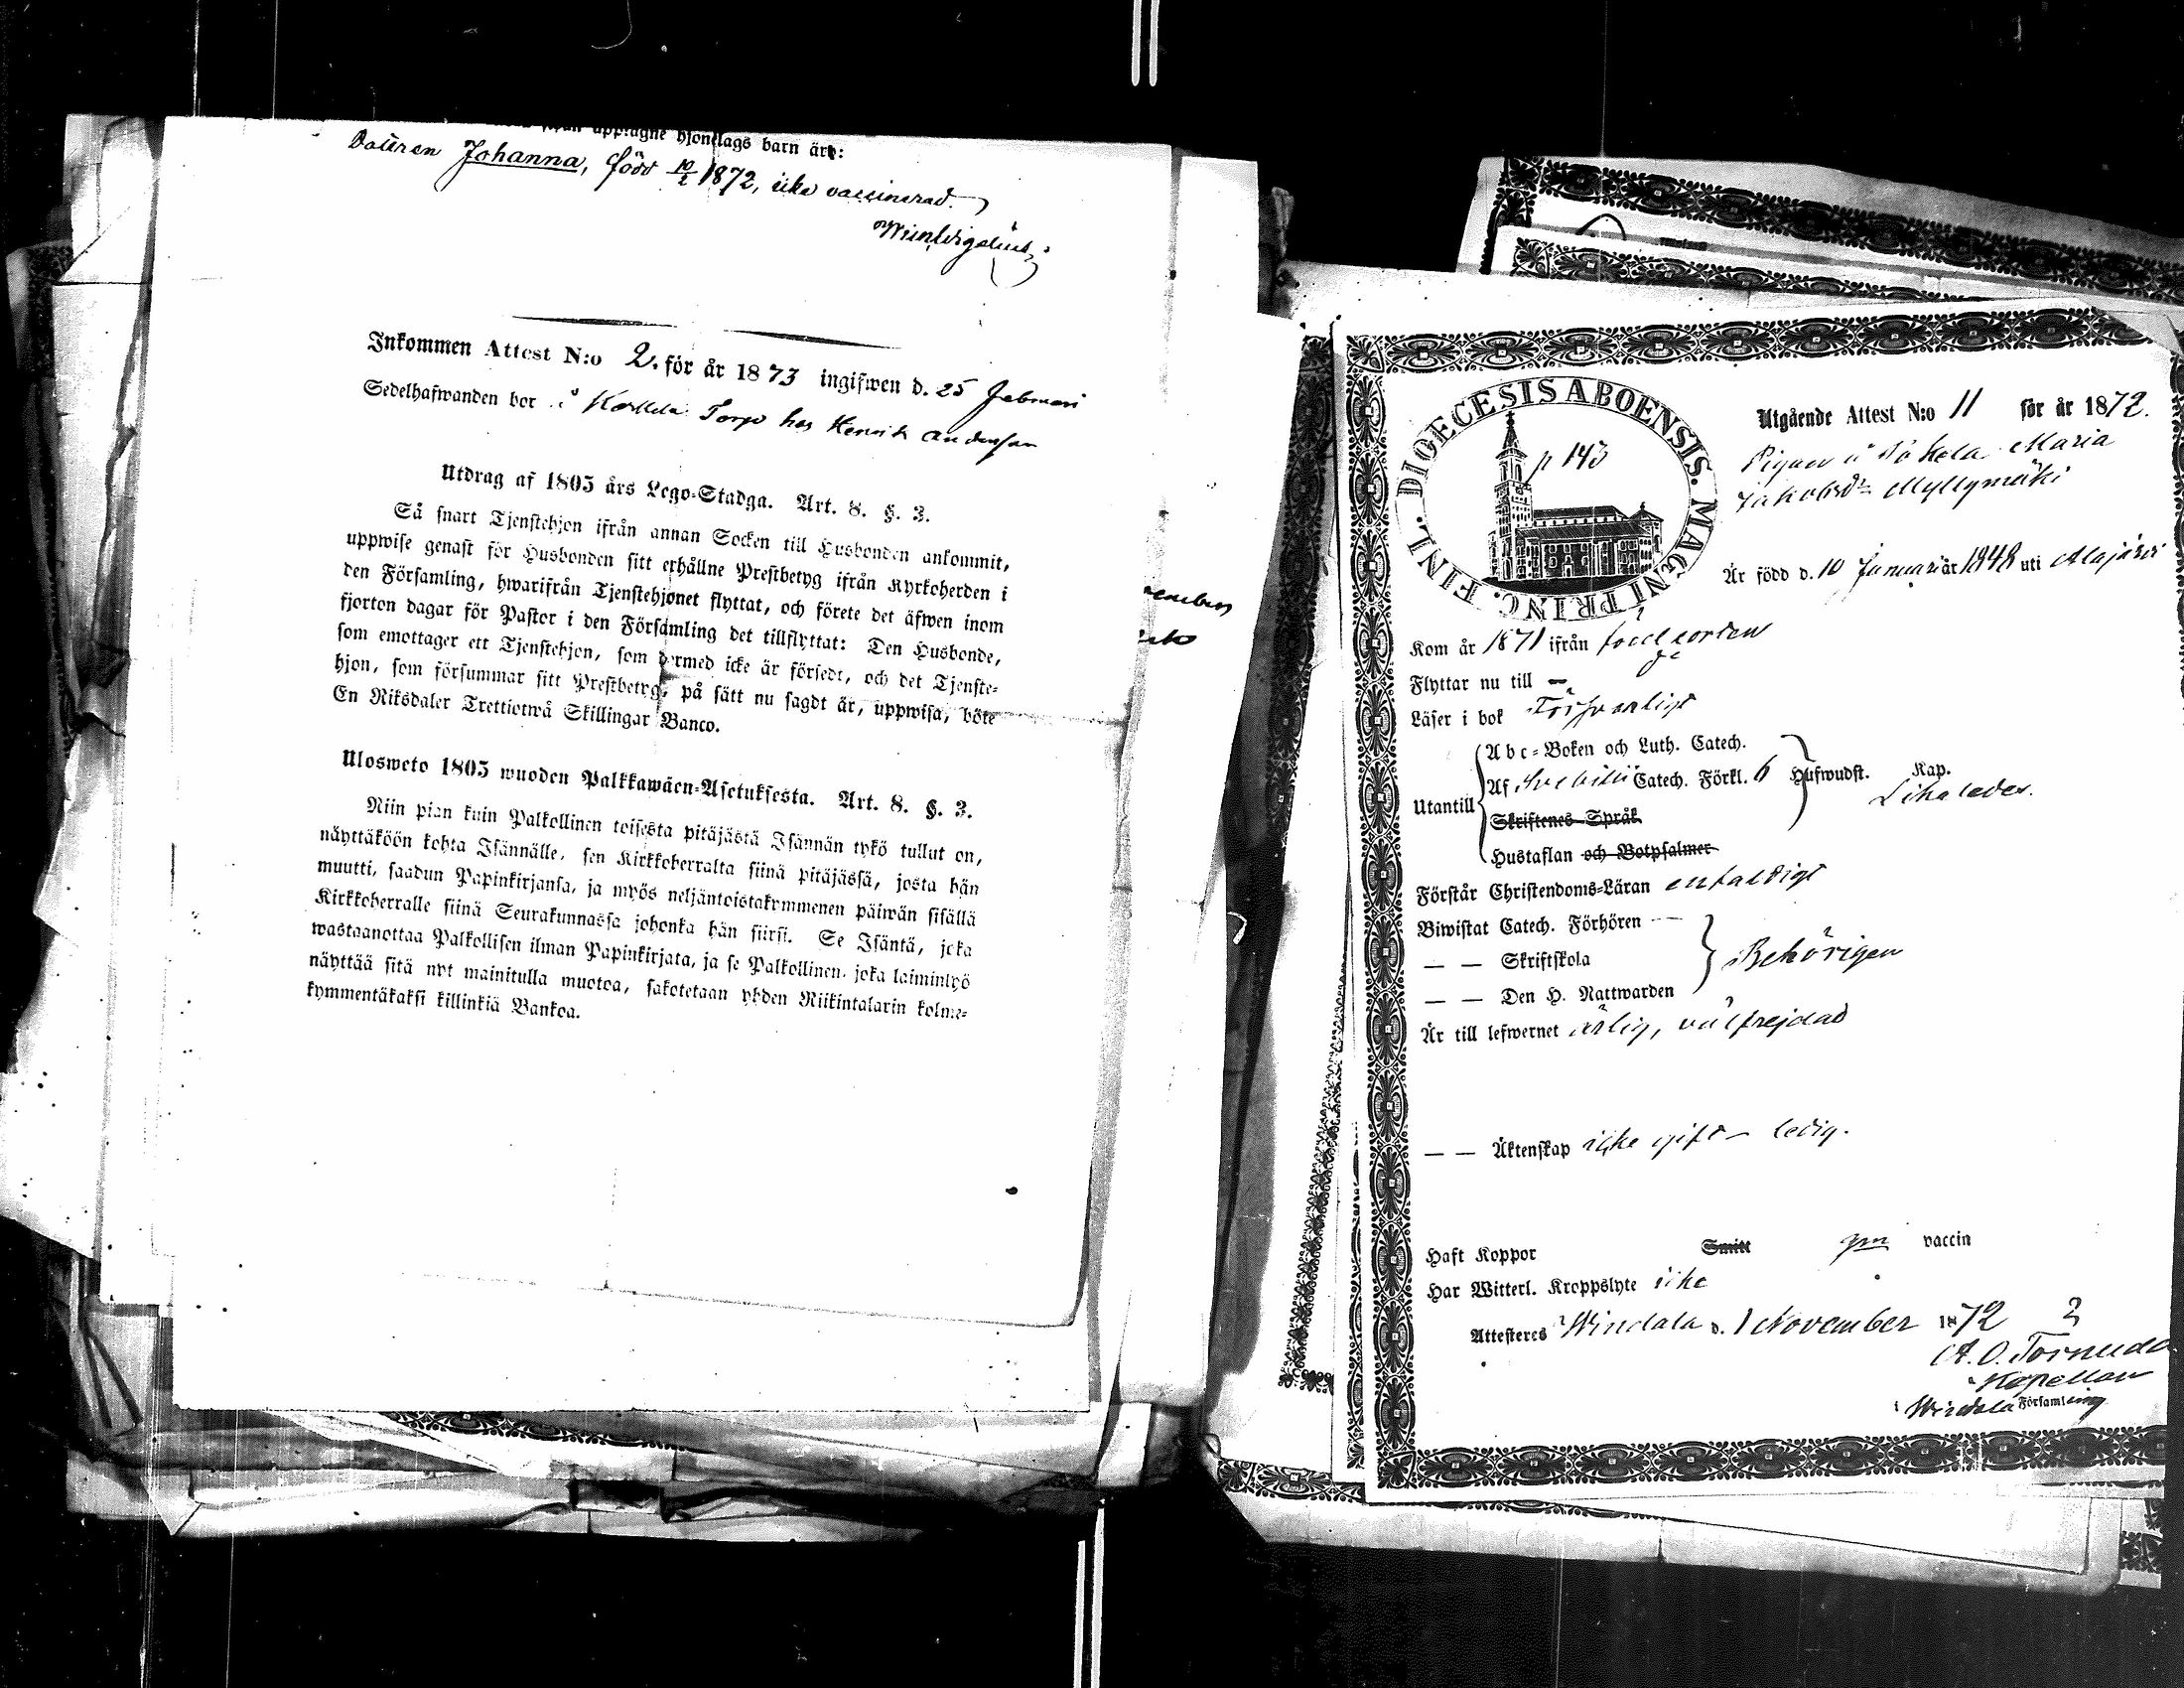 upptagne hjonelags barn äro:
Dottren Johanna, född 10/2 1872, icke vaccinerad.
Inkommen Attest N:o 2. för år 1873 ingifwen d. 25 Februari
Sedelhafwanden bor å Torp hos Henrik Andersson
Utdrag af 1805 års Lego-Stadga. Art. 8. §. 3.
Så snart Tjenstehjon ifrån annan Socken till Husbonden ankommit,
uppwise genast för Husbonden sitt erhållne Prestbetyg ifrån Kyrkoherden i
den Församling, hwarifrån Tjenstehjonet flyttat, och förete det äfwen inom
fjorton dagar för Pastor i den Församling det tillflyttat: Den Husbonde,
som emottager ett Tjenstehjon, som dermed icke är försedt, och det Tjenste-
hjon, som försummar sitt Prestbetyg, på sätt nu sagdt är, uppwisa, böte
En Riksdaler Trettiotwå Skillingar Banco.
Ulosweto 1805 wuoden Palkkawäen-Asetuksesta. Art. 8. §. 3.
Niin pian kuin Palkollinen toisesta pitäjästä Isännän tykö tullut on,
näyttäköön kohta Isännälle, sen Kirkkoherralta siinä pitäjässä, josta hän
muutti, saadun Papinkirjansa, ja myös neljäntoistakymmenen päiwän sisällä
Kirkkoherralle siinä Seurakunnassa johonka hän siirsi. Se Isäntä, joka
wastaanottaa Palkollisen ilman Papinkirjata, ja se Palkollinen, joka laiminlyö
näyttää sitä nyt mainitulla muotoa, sakotetaan yhden Riikintalarin kolme-
kymmentäkaksi killinkiä Bankoa.
DIOECESIS ABOENSIS. MAGNI PRINC. FINL.
p 143
Utgående Attest N:o 11 för år 1872.
Pigan å Maria
Jakobsdr Myllymäki
Är född d. 10 Januari år 1848 uti Alajärvi
Kom år 1871 ifrån
Flyttar nu till —
Läser i bok Försvarligt
Utantill
Abc-Boken och Luth. Catech.
Af Svebilii Catech. Förkl. 6 Hufwudst. Kap.
Likaledes.
Skriftenes Språk
Hustaflan och Botpsalmer
Förstår Christendoms-Läran enfaldigt
Biwistat Catech. Förhören
— — Skriftskola
Behörigen
— — Den H. Nattwarden
Är till lefwernet ärlig, välfrejdad
— — Äktenskap icke gift – ledig.
Haft Koppor Smitt gm vaccin
Har Witterl. Kroppslyte icke
Attesteres Windala d. 1 November 1872
A. O. Törnudd
Kapellan
Windala Församling